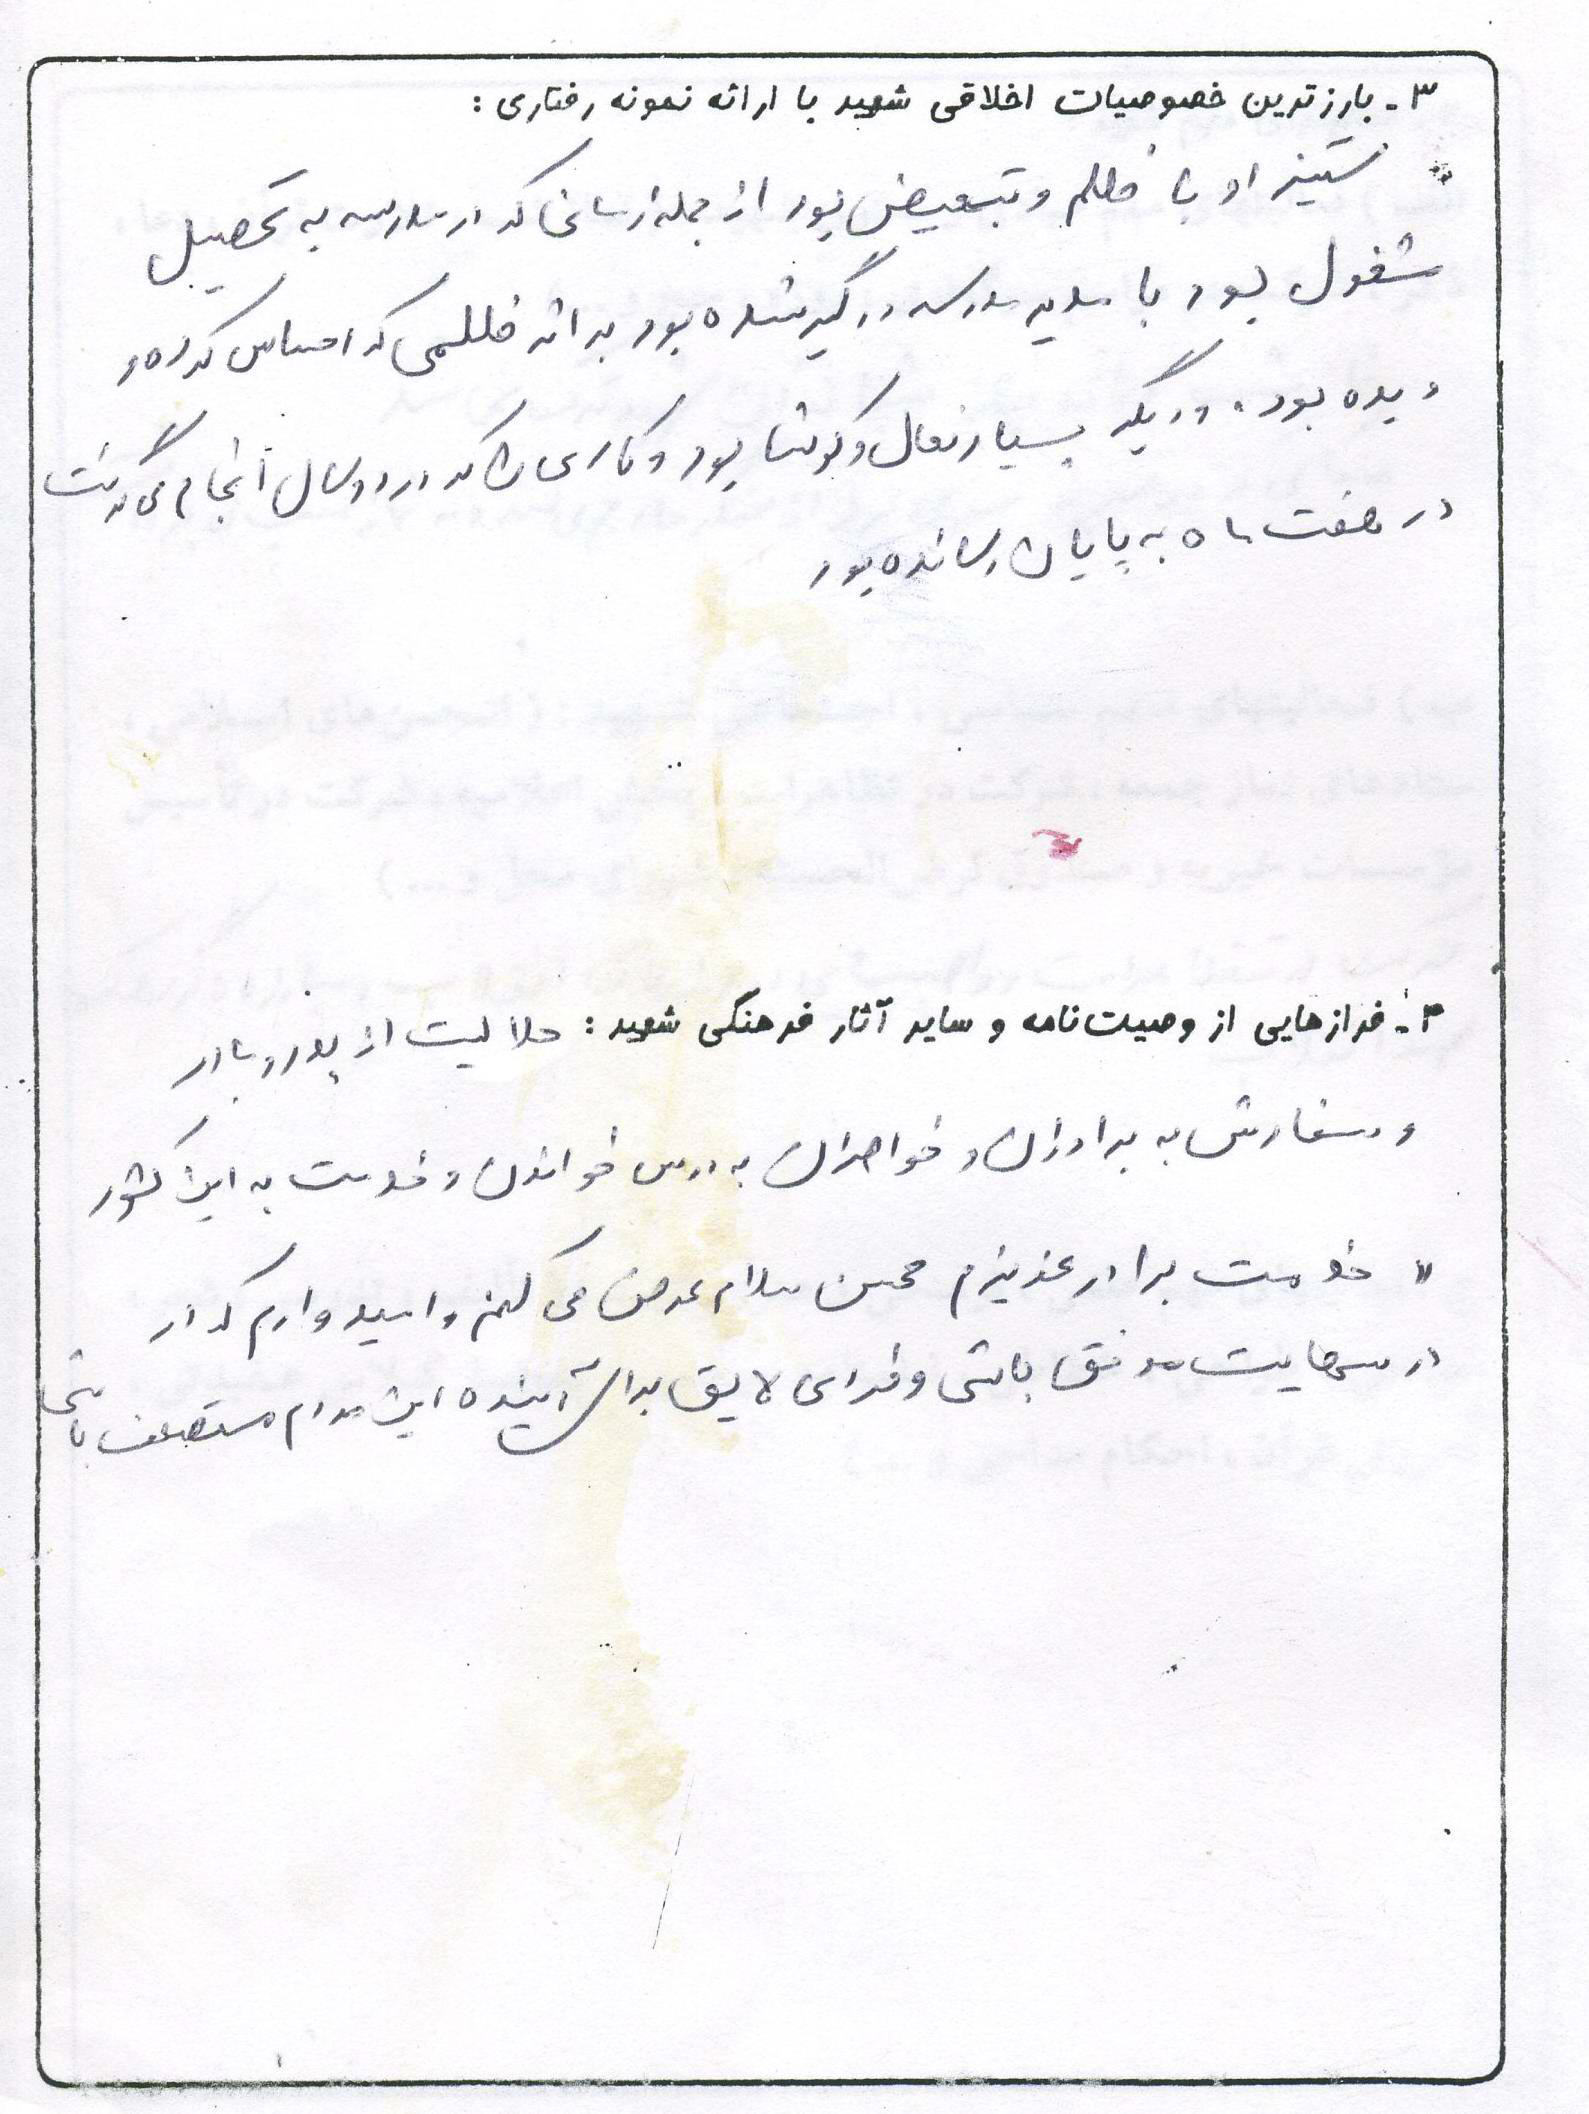 ۳ - بارزترین خصوصیات اخلاقی شهید با ارائه نمونه رفتاری :
ستیز او با ظلم و تبعیض بود از جمله زمانی که در مدرسه به تحصیل
مشغول بود با مدیر مدرسه درگیر شده بود بر اثر ظلمی که احساس کرده و
دیده بود . دیگر بسیار فعال و کوشا بود و کاری را که در دو سال انجام می گرفت
در هفت ماه به پایان رسانده بود
۴ - فرازهایی از وصیت‌نامه و سایر آثار فرهنگی شهید : حلالیت از پدر و مادر
و سفارش به برادران و خواهران به درس خواندن و خدمت به این کشور
" خدمت برادر عزیزم محسن سلام عرض می کنم و امیدوارم که در
درسهایت موفق باشی و فردی لایق برای آینده این مردم مستضعف باشی